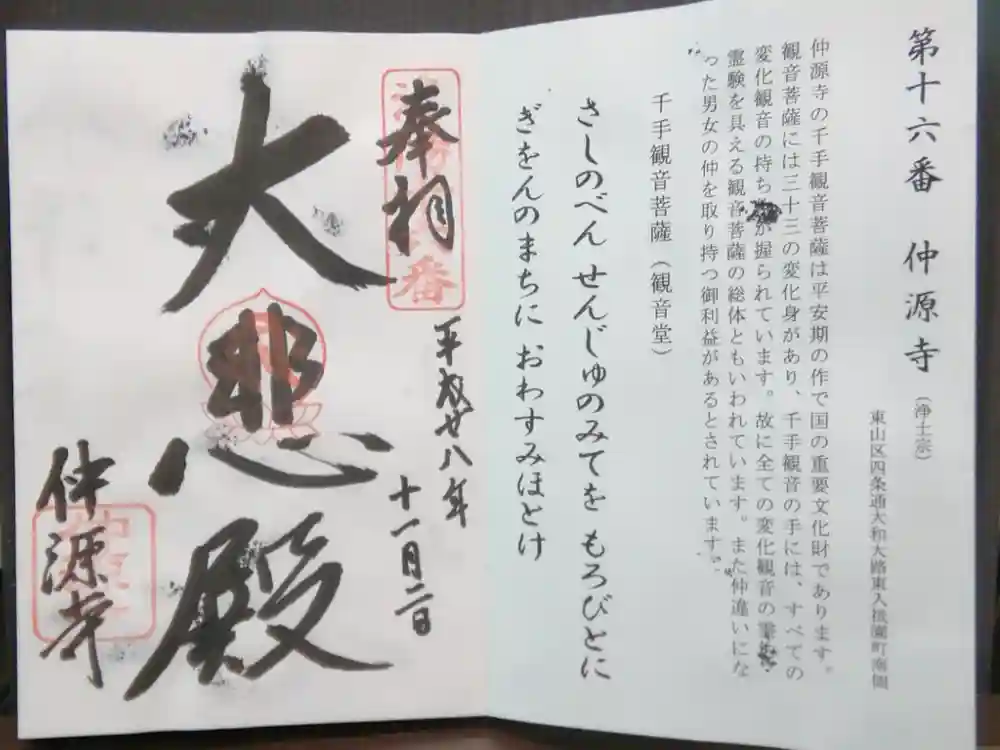 第十六番 仲源寺(浄土宗)
東山区四条通大和大路東入祇園町南側
仲源寺の千手観音菩薩は平安期の作で国の重要文化財であります。
観音菩薩には三十三の変化身があり、千手観音の手には、すべての
変化観音の持ち が握られています。故に全ての変化観音の
霊験を具える観音菩薩の総体ともいわれています。また仲違いにな
った男女の仲を取り持つ御利益があるとされています。
千手観音菩薩(観音堂)
さしのべん せんじゅのみてを もろびとに
ぎをんのまちに おわすみほとけ
奉拝
平成廿八年
十一月二日
大悲殿
仲源寺
番